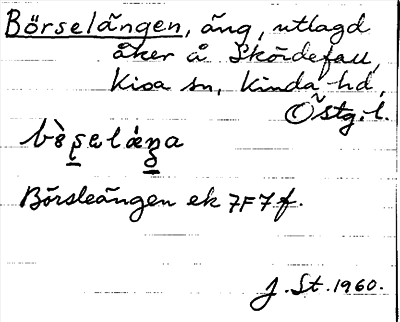 Börselängen, äng, utlagd
åker å Skördefall,
Kisa sn, Kinda hd,
Östg. l.
Börsleängen ek 7F7f.
J. St. 1960.